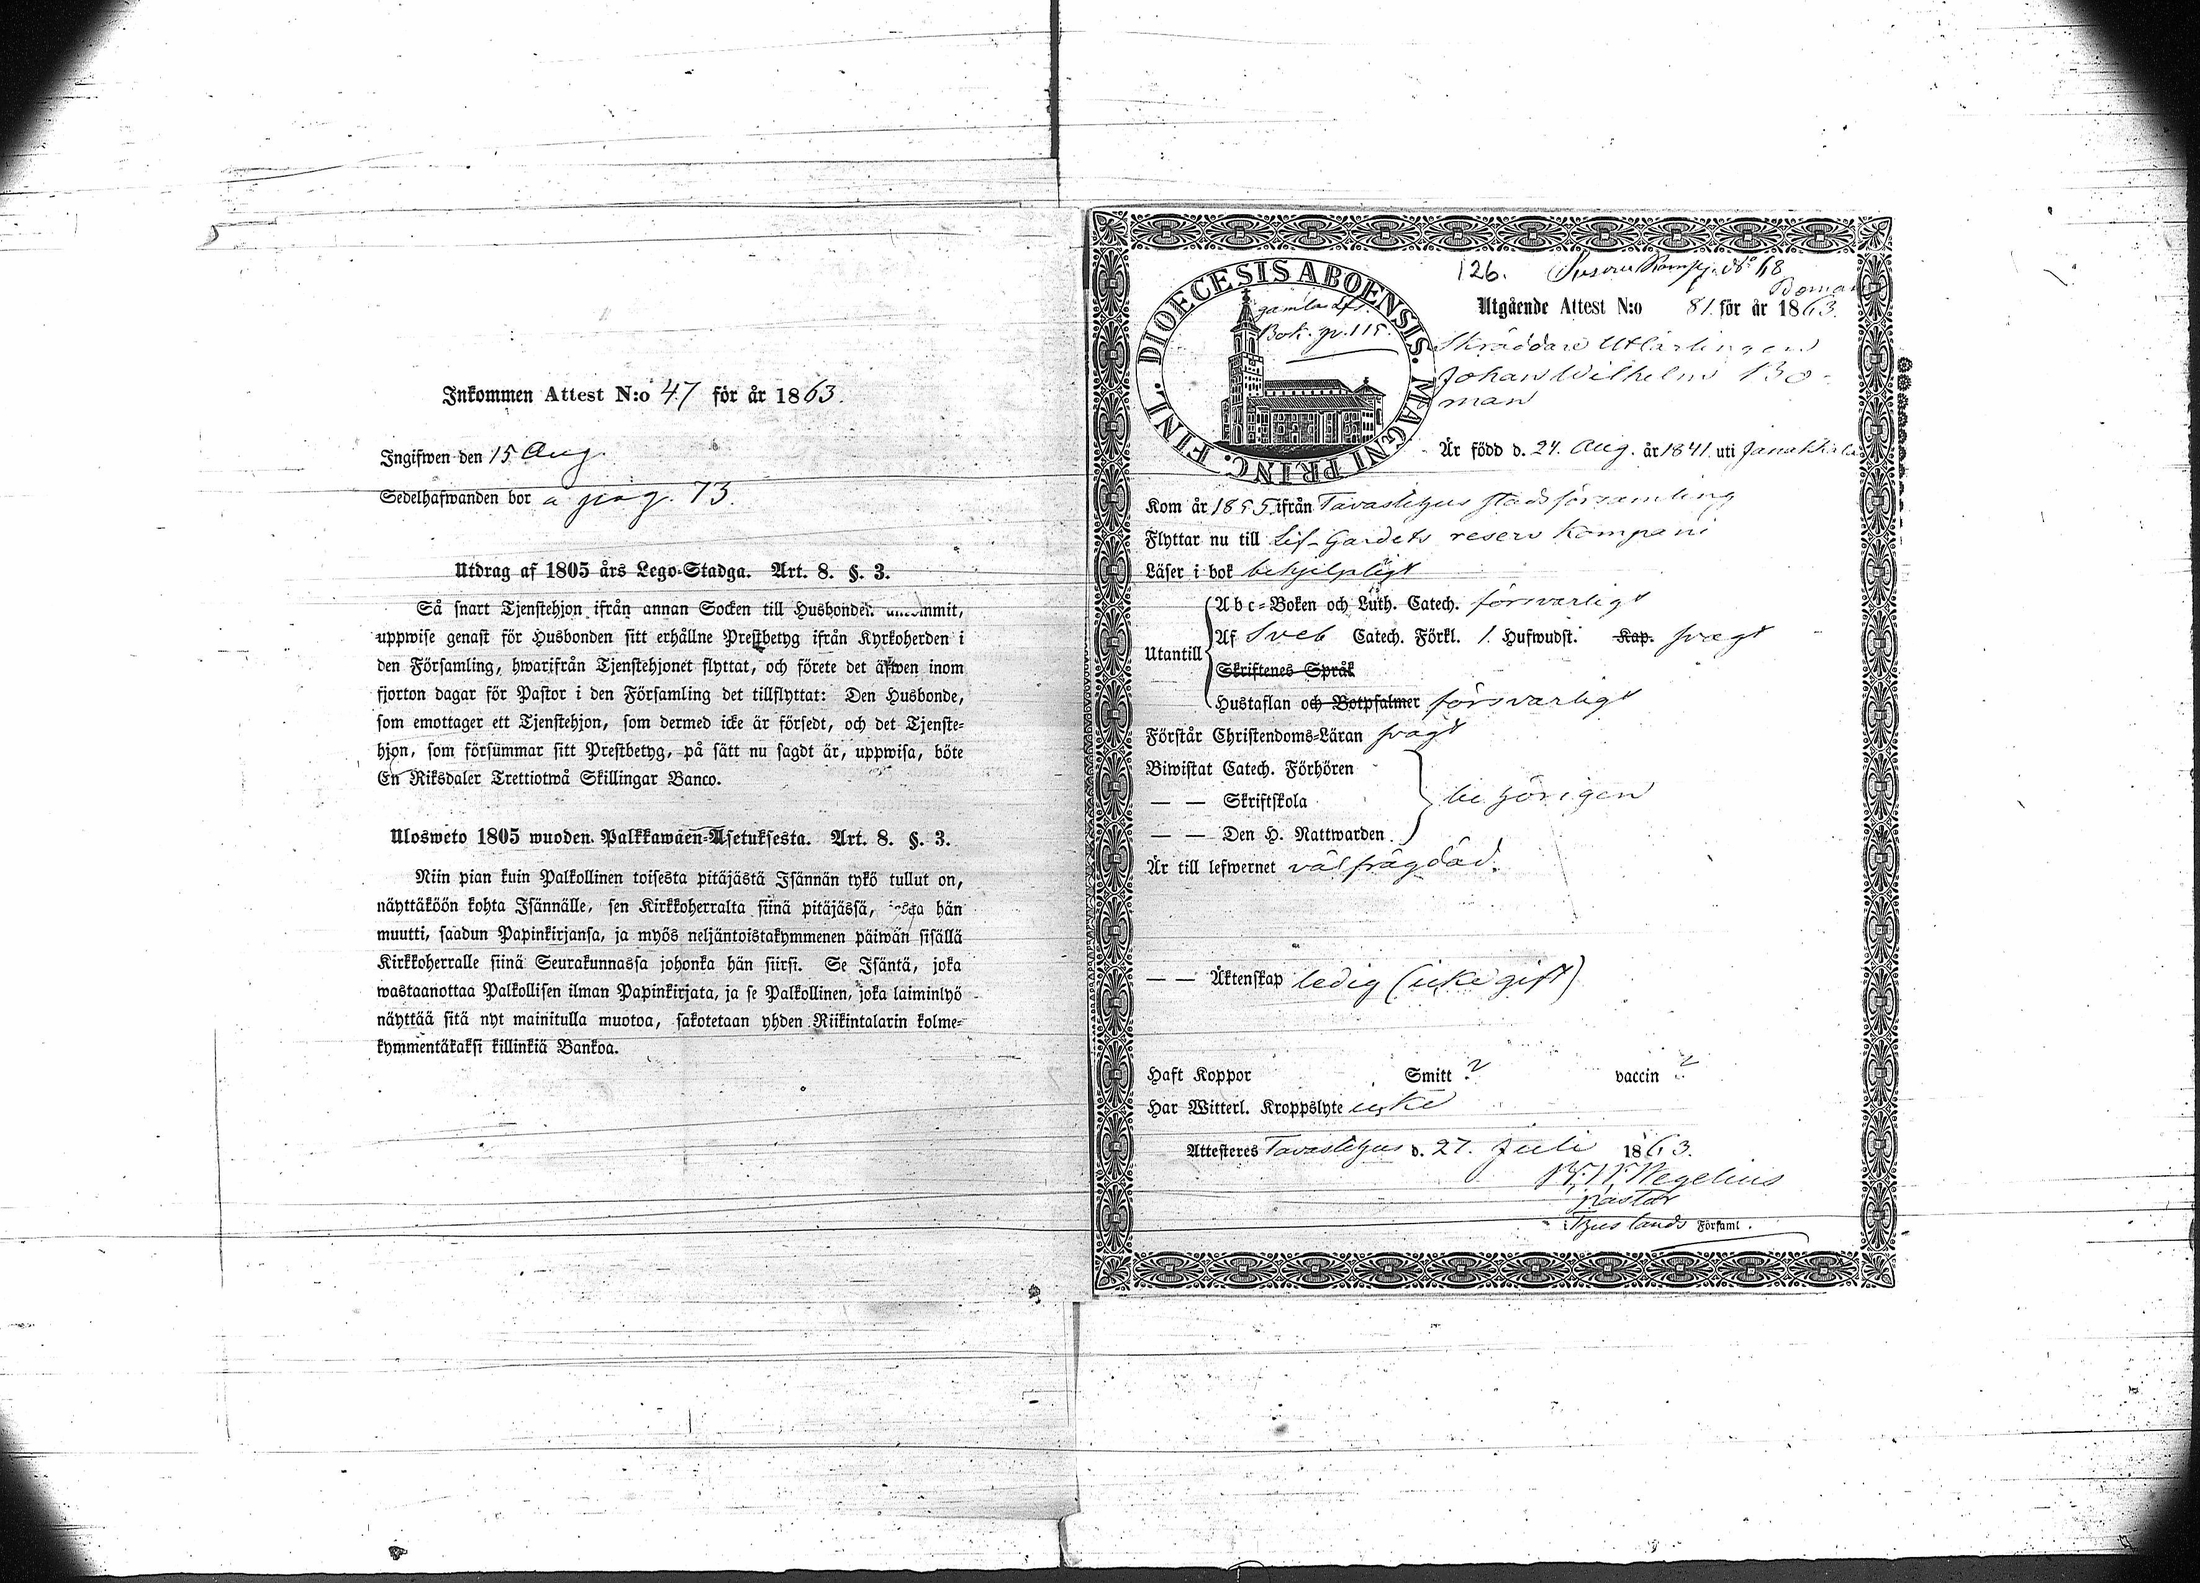 Inkommen Attest N:o 47 för år 1863.
Ingifwen den 15 Aug.
Sedelhafwanden bor a pag. 73.
Utdrag af 1805 års Lego-Stadga. Art. 8. §. 3.
Så snart Tjenstehjon ifrån annan Socken till Husbonden
uppwise genast för Husbonden sitt erhållne Prestbetyg ifrån Kyrkoherden i
den Församling, hwarifrån Tjenstehjonet flyttat, och förete det äfwen inom
fjorton dagar för Pastor i den Församling det tillflyttat: Den Husbonde,
som emottager ett Tjenstehjon, som dermed icke är försedt, och det Tjenste-
hjon, som försummar sitt Prestbetyg, på sätt nu sagdt är, uppwisa, böte
En Riksdaler Trettiotwå Skillingar Banco.
Ulosweto 1805 wuoden Palkkawäen-Asetuksesta. Art. 8. §. 3.
Niin pian kuin Palkollinen toisesta pitäjästä Isännän tykö tullut on,
näyttäköön kohta Isännälle, sen Kirkkoherralta siinä pitäjässä, josta hän
muutti, saadun Papinkirjansa, ja myös neljäntoistakymmenen päiwän sisällä
Kirkkoherralle siinä Seurakunnassa johonka hän siirsi. Se Isäntä, joka
wastaanottaa Palkollisen ilman Papinkirjata, ja se Palkollinen, joka laiminlyö
näyttää sitä nyt mainitulla muotoa, sakotetaan yhden Riikintalarin kolme-
kymmentäkaksi killinkiä Bankoa.
DIOECESIS ABOENSIS. MAGNI PRINC. FINL.
gamla
Bok. p. 115.
126. No 68
Boman
Utgående Attest N:o 81 för år 1863.
Skräddare Utlärlingen
Johan Wilhelm Bo-
man
Är född d. 24. Aug. år 1841. uti Janakkala
Kom år 1855 ifrån Tavastehus stadsförsamling
Flyttar nu till Lif-Gardets reserv Kompani
Läser i bok behjelpligt
Utantill
Abc-Boken och Luth. Catech. försvarligt
Af Sveb Catech. Förkl. 1. Hufwudst. Kap. svagt
Skriftenes Språk
Hustaflan och Botpsalmer försvarligt
Förstår Christendoms-Läran svagt
Biwistat Catech. Förhören
— — Skriftskola behörigen
— — Den H. Nattwarden
Är till lefwernet välfrägdad.
— — Äktenskap ledig (icke gift)
Haft Koppor Smitt ? vaccin ?
Har Witterl. Kroppslyte icke
Attesteres Tavastehus d. 27. Juli 1863.
Wegelius
Pastor
Thus lands Församl.